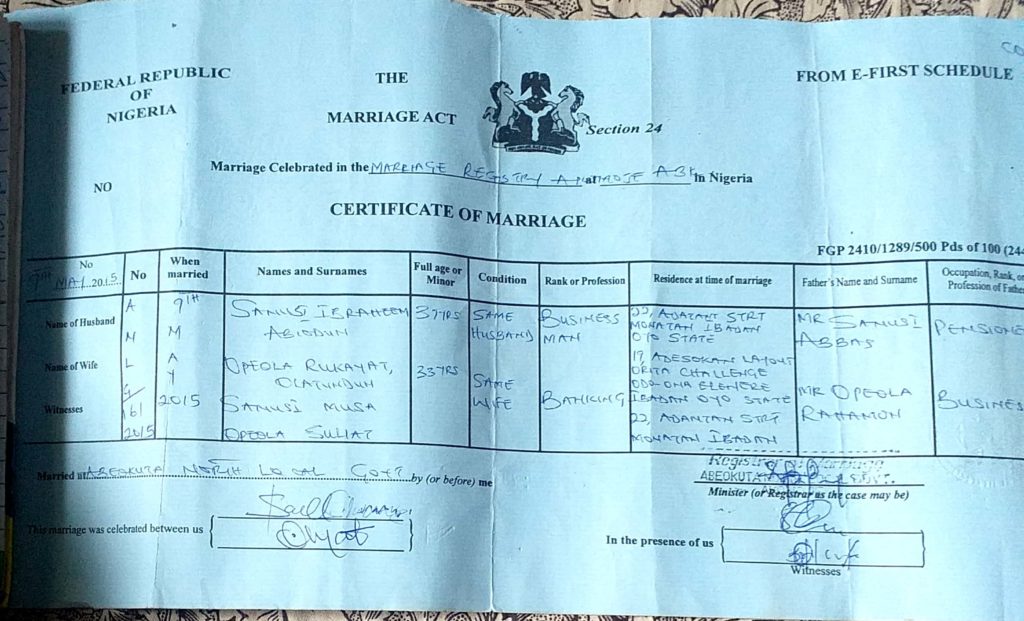 CO
FEDERAL REPUBLIC
OF
NIGERIA
THE
MARRIAGE ACT
Section 24
FROM E-FIRST SCHEDULE
Marriage Celebrated in the MARRIAGE REGISTRY at in Nigeria
NO
CERTIFICATE OF MARRIAGE
FGP 2410/1289/500 Pds of 100 (244
No
9TH MAY 2015
No
When married
Names and Surnames
Full age or Minor
Condition
Rank or Profession
Residence at time of marriage
Father's Name and Surname
Occupation, Rank, or Profession of Father
Name of Husband
A
N
9TH
M
SANUSI IBRAHEEM
ABIODUN
37YRS
SAME
HUSBAND
BUSINESS
MAN
22, ADANTAN STRT
MONATAN IBADAN
OYO STATE
MR SANUSI
ABBAS
PENSIONE
Name of Wife
L
G/
A
Y
2015
OPEOLA RUKAYAT,
OLATUNDUN
33YRS
SAME
WIFE
BANKING
17, ADESOKAN LAYOUT
ORITA CHALLENGE
ODO-ONA ELENERE
IBADAN OYO STATE
MR OPEOLA
RAHAMON
BUSINES
Witnesses
161
2015
SANUSI MUSA
OPEOLA SULIAT
22, ADANTAN STRT
MONATAN IBADAN
Married at ABEOKUTA NORTH LOCAL GOVT by (or before) me
Registrar of Marriage
ABEOKUTA
Minister (or Registrar as the case may be)
This marriage was celebrated between us
In the presence of us
Witnesses